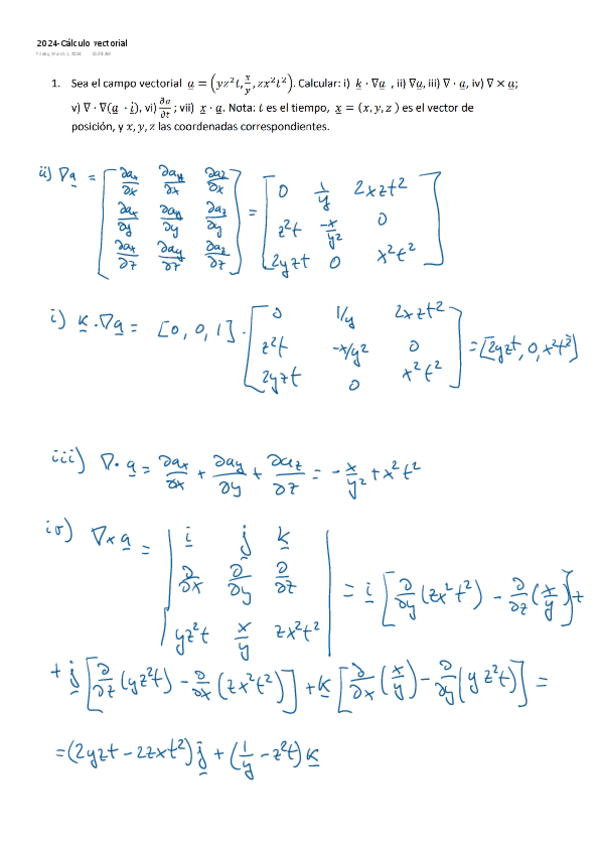 2024-Cálculo vectorial
1. Sea el campo vectorial a = (yz²t, x/y, zx²t²). Calcular: i) k · ∇a , ii) ∇a, iii) ∇ · a, iv) ∇ × a;
v) ∇ · ∇(a · i), vi) ∂a/∂t ; vii) x · a. Nota: t es el tiempo, x = (x, y, z ) es el vector de
posición, y x, y, z las coordenadas correspondientes.
ii) ∇a = [∂ax/∂x ∂ay/∂x ∂az/∂x; ∂ax/∂y ∂ay/∂y ∂az/∂y; ∂ax/∂z ∂ay/∂z ∂az/∂z] = [0 1/y 2xzt²; z²t -x/y² 0; 2yzt 0 x²t²]
i) k · ∇a = [0, 0, 1] · [0 1/y 2xzt²; z²t -x/y² 0; 2yzt 0 x²t²] = [2yzt, 0, x²t²]
iii) ∇· a = ∂ax/∂x + ∂ay/∂y + ∂az/∂z = - x/y² + x²t²
iv) ∇x a = | i j k; ∂/∂x ∂/∂y ∂/∂z; yz²t x/y zx²t² | = i [∂/∂y (zx²t²) - ∂/∂z (x/y)] +
+ j [∂/∂z (yz²t) - ∂/∂x (zx²t²)] + k [∂/∂x (x/y) - ∂/∂y (y z²t)] =
= (2yzt - 2zxt²) j + (1/y - z²t) k